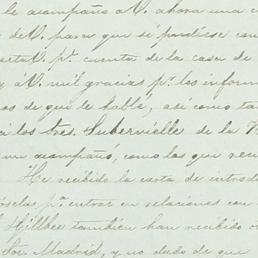 le acompaño a V. ahora una c
de V. para que si pudiese con
carta V. pr. cuenta de la casa de
y á V. mil gracias pr. los inform
as de que le hablé, así como ta
á los Sres. Subervielle de la
me acompañó, como las que reci
He recibido la carta de introd
pr. entrar en relaciones con
Hillbee tambien han recibido o
Sor. Madrid, y no dudo de que